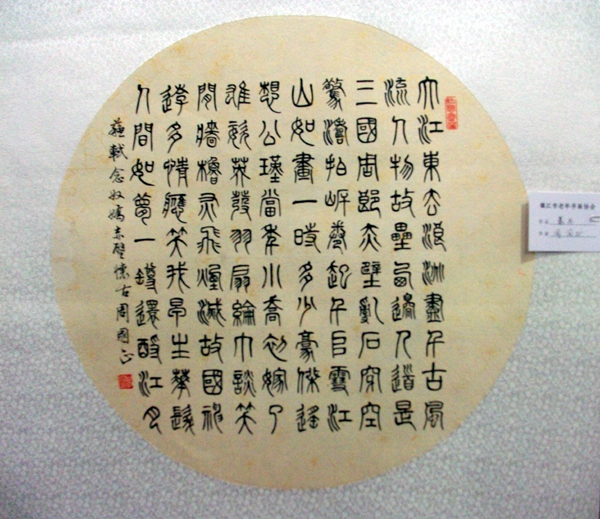 大江東去浪淘盡千古風
流人物故壘西邊人道是
三國周郎赤壁亂石穿空
驚濤拍岸卷起千𠂤雪江
山如畫一時多少豪傑遙
想公瑾當年小喬初嫁了
雄姿英發羽扇綸巾談笑
間檣櫓灰飛煙滅故國神
遊多情應笑我早生華髮
人間如夢一樽還酹江月
蘇軾念奴嬌赤壁懷古周國正